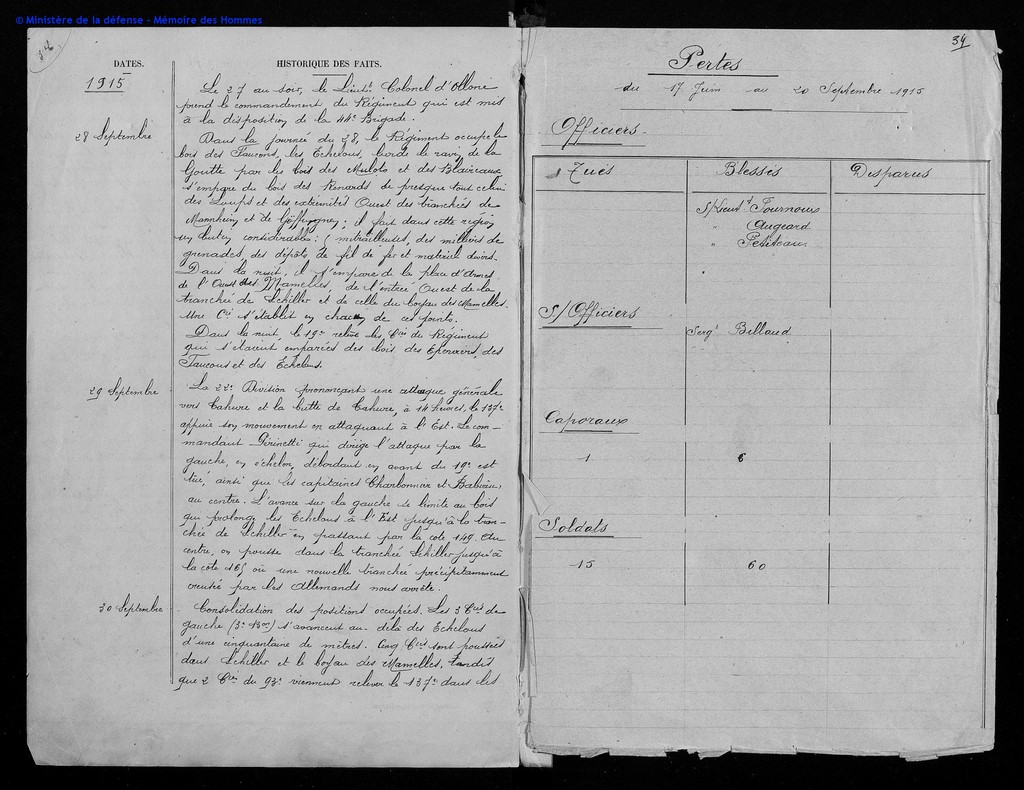 © Ministère de la défense - Mémoire des Hommes
DATES.
HISTORIQUE DES FAITS.
1915
Le 27 au soir, le Lieut! Colonel d'Ollone
prend le commandement du Régiment qui est mis
à la disposition de la 44e Brigade.
28 Septembre
Dans la journée du 28, le Régiment occupe le
bois des Faucons, les Echelons, borde le ravin de la
Goutte par les bois des Mulots et des Blaireaux
s'empare du bois des Renards de presque tout celui
des Loups et des extrémités Ouest des tranchées de
Mannheim et de ; il fait dans cette région
un butin considérable : mitrailleuses, des milliers de
grenades, des dépôts de fil de fer et matériel divers.
Dans la nuit, il s'empare de la place d'Armes
de l'Ouest des Mamelles, de l'entrée Ouest de la
tranchée de Schiller et de celle du boyau des Mamelles.
Une Cie s'établit en chacun de ces points.
Dans la nuit le 19e relève les Cies du Régiment
qui s'étaient emparées des bois des Eperviers, des
Faucons et des Echelons.
29 Septembre
La 22e Division prononçant une attaque générale
vers Tahure et la butte de Tahure, à 14 heures, le 137e
appuie son mouvement en attaquant à l'Est. Le com-
mandant Pirinetti qui dirige l'attaque par la
gauche, en échelon, débordant en avant du 19e est
tué, ainsi que les capitaines Charbonnier et
au centre. L'avance sur la gauche se limite au bois
qui prolonge les Echelons à l'Est jusqu'à la tran-
chée de Schiller en passant par la cote 149. Au
centre, on pousse dans la tranchée Schiller jusqu'à
la côte 165 où une nouvelle tranchée précipitamment
creusée par les Allemands nous arrête.
30 Septembre
Consolidation des positions occupées. Les 3 Cies de
gauche (3e Bon) s'avancent au-delà des Echelons
d'une cinquantaine de mètres. Cinq Cies sont poussées
dans Schiller et le boyau des Mamelles. Tandis
que 2 Cies du 93e viennent relever le 137e dans les
34
Pertes
du 17 Juin au 20 Septembre 1915
Officiers
Tués Blessés Disparus
S/Lieut! Fournoux
" Augeard
" Petiteau
S/Officiers
Sergt Billaud
Caporaux
1 6
Soldats
15 60